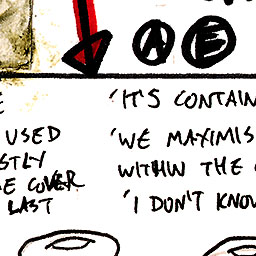 A E
E
USED
STLY
E COVER
LAST
'IT'S CONTAIN
'WE MAXIMIS
WITHIN THE
'I DON'T KNOW